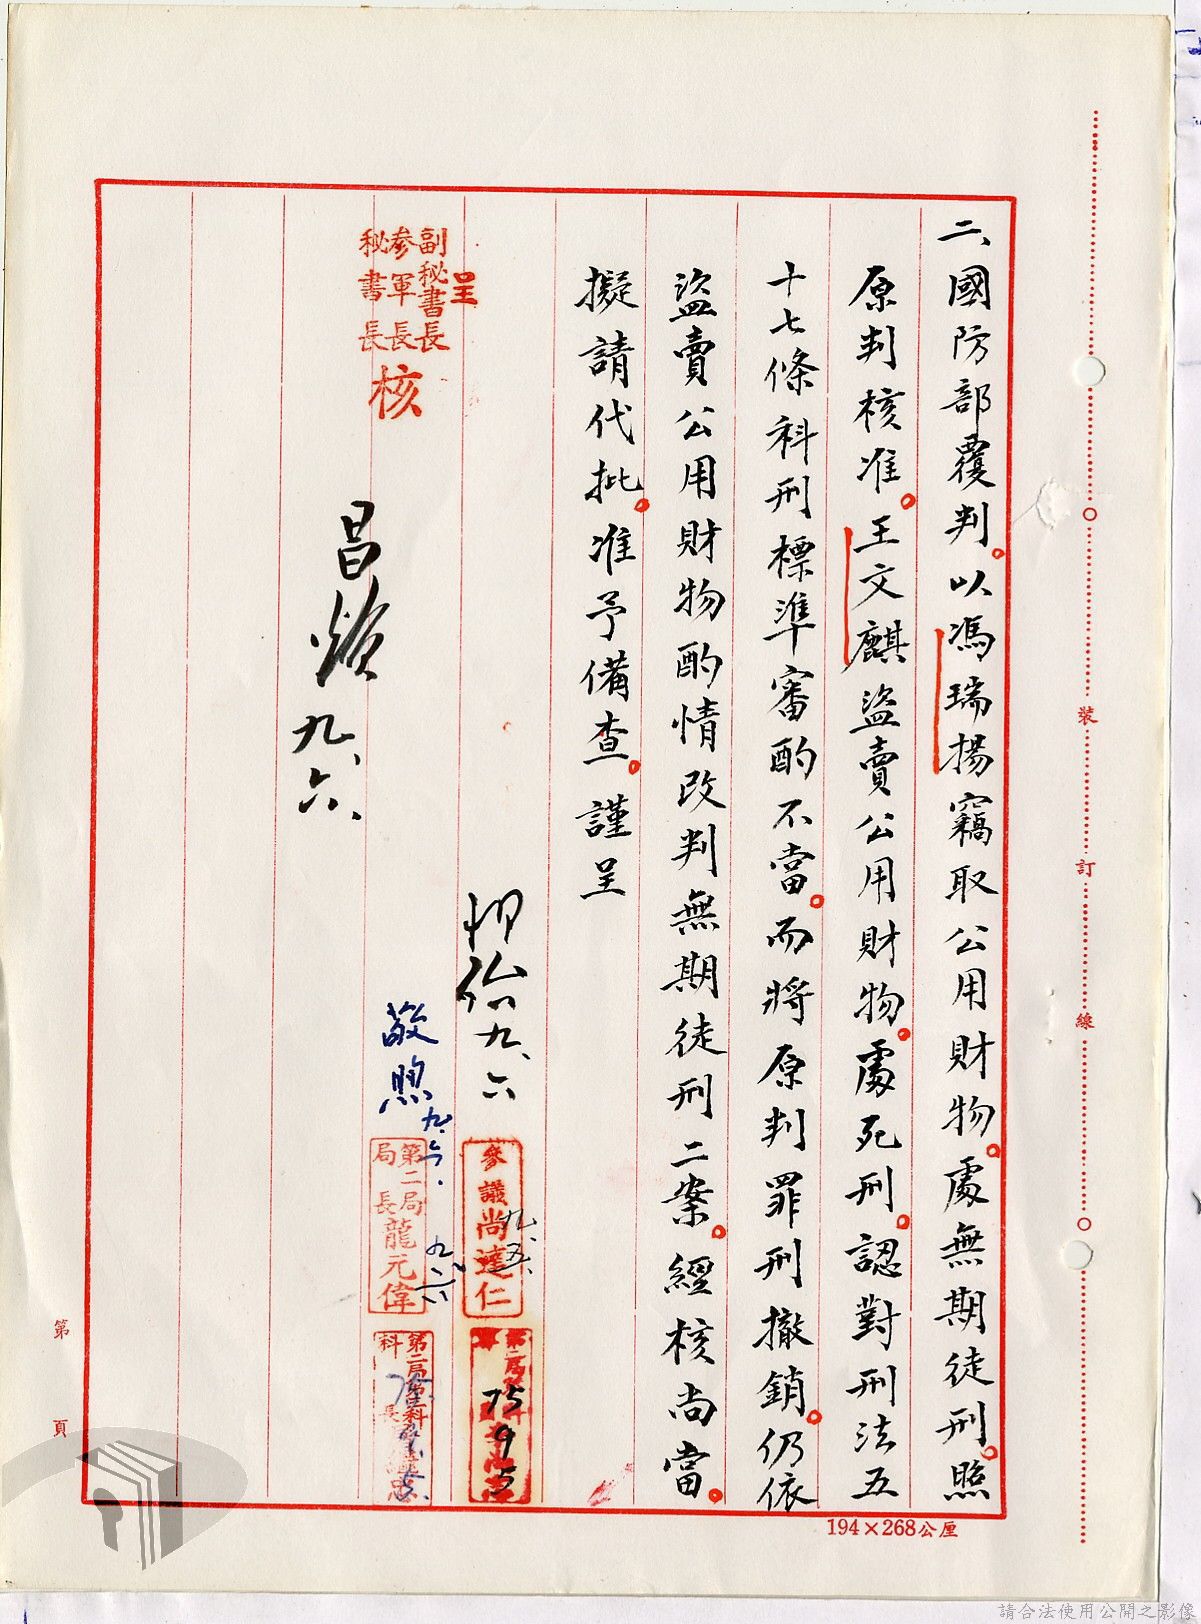 二、國防部覆判。以馮瑞揚竊取公用財物。處無期徒刑。照
原判核准。王文麒盜賣公用財物。處死刑。認對刑法五
十七條科刑標準審酌不當。而將原判罪刑撤銷。仍依
盜賣公用財物酌情改判無期徒刑二案。經核尚當。
擬請代批。准予備查。謹呈
呈
副秘書長
參軍長
秘書長
核
九、六
參議尚達仁
九、五、
75
9
5
敬煦 九、六、
第二局
局長龍元偉
九、六
第二局
科長
昌煥 九、六、
裝
訂
線
第
頁
194×268公厘
請合法使用公開之影像